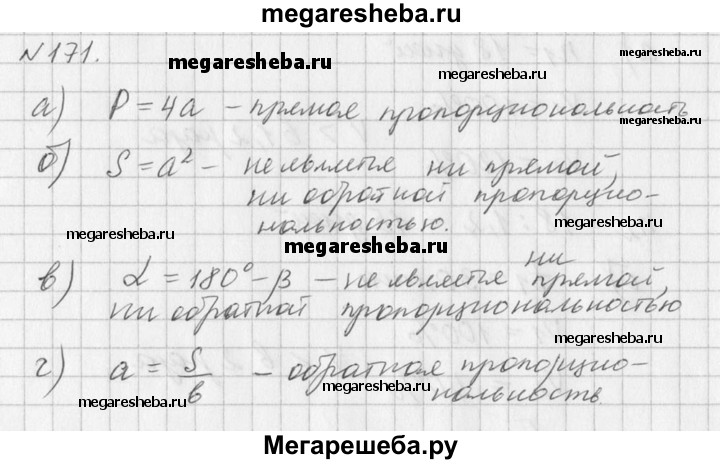 megaresheba.ru
N 171.
megaresheba.ru
megaresheba.ru
а) P = 4a – прямая пропорциональность
megaresheba.ru
megaresheba.ru
б) S = a² – не является ни прямой,
ни обратной пропорцио-
нальностью.
megaresheba.ru
megaresheba.ru
megaresheba.ru
ни
в) α = 180° – β – не является прямой,
ни обратной пропорциональностью
г) a = S/b – обратная пропорцио-
нальность.
megaresheba.ru
megaresheba.ru
megaresheba.ru
Мегарешеба.ру